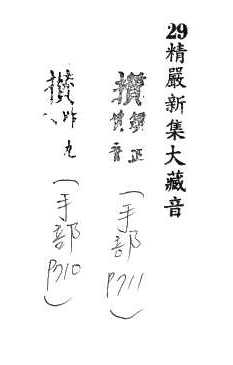 29精嚴新集大藏音
攢 正 音 (手部P711)
昨 (手部P710)